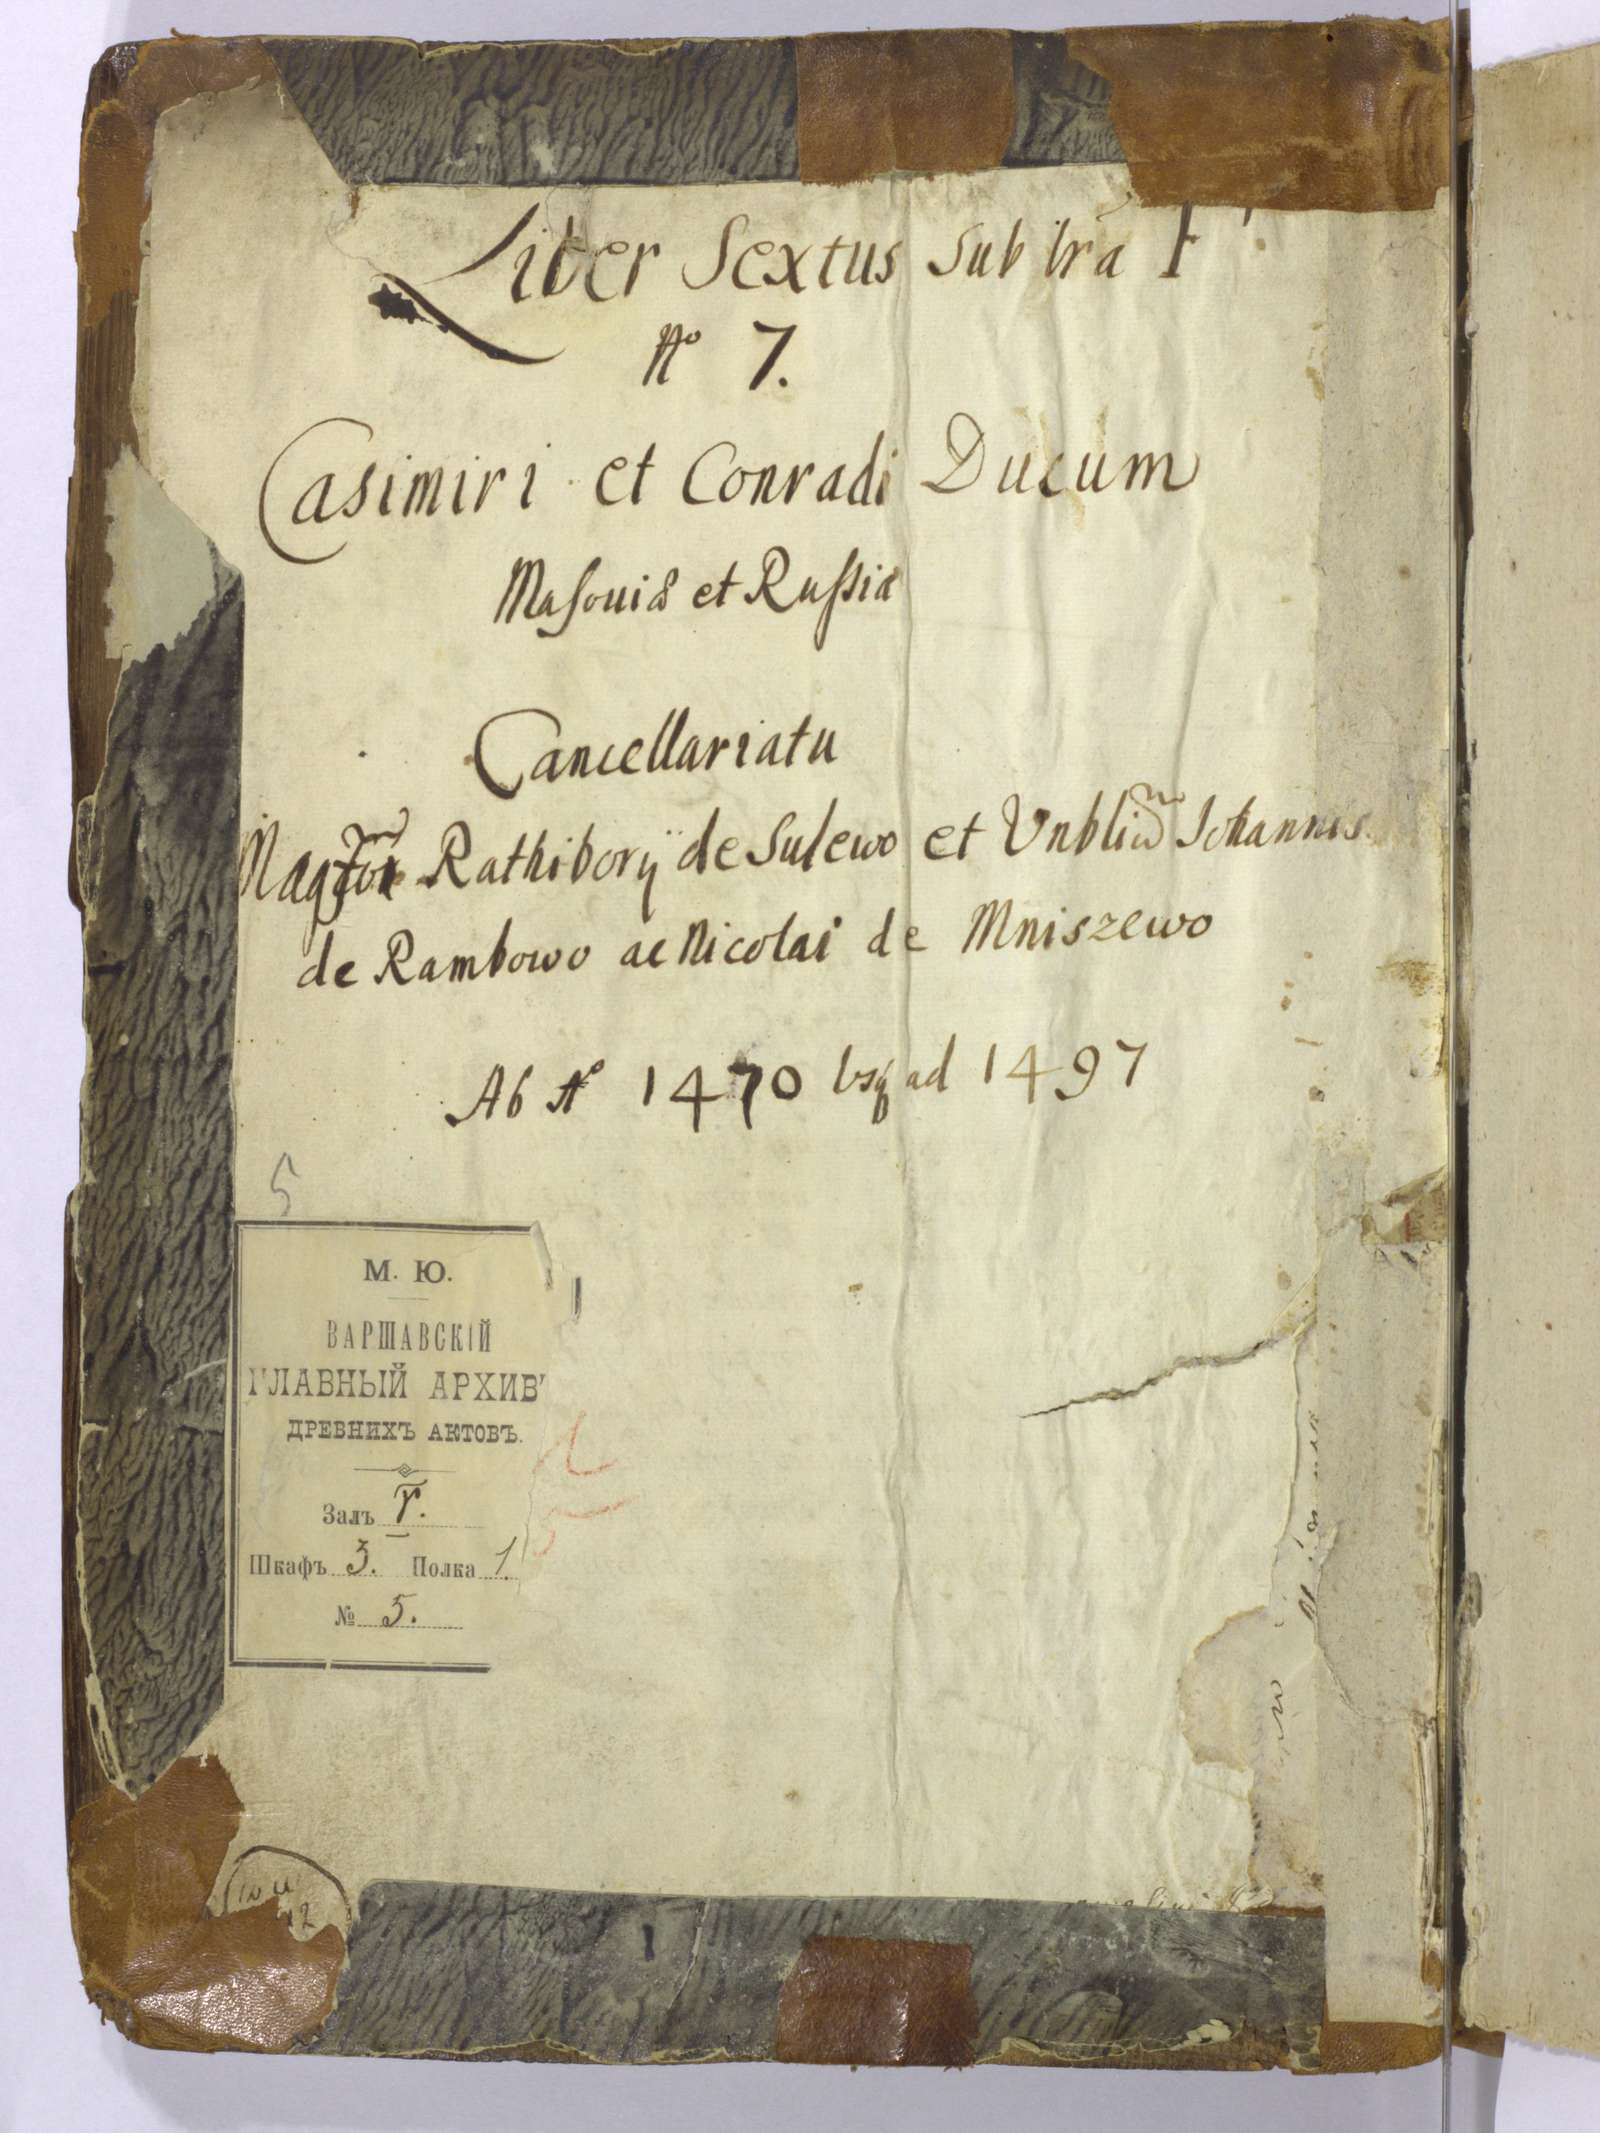 Liber Sextus sub lrã F
Nº 7.
Casimiri et Conradi Ducum
Masouiæ et Russiæ
Cancellariatu
Rathiborÿ de Sulewo et Johannis
de Rambowo ac Nicolai de Mniszewo
Ab Aº 1470 vsq ad 1497
5
М. Ю.
ВАРШАВСКІЙ
ГЛАВНЫЙ АРХИВ
ДРЕВНИХЪ АКТОВЪ.
Залъ
Шкафъ 3. Полка 1.
№ 5.